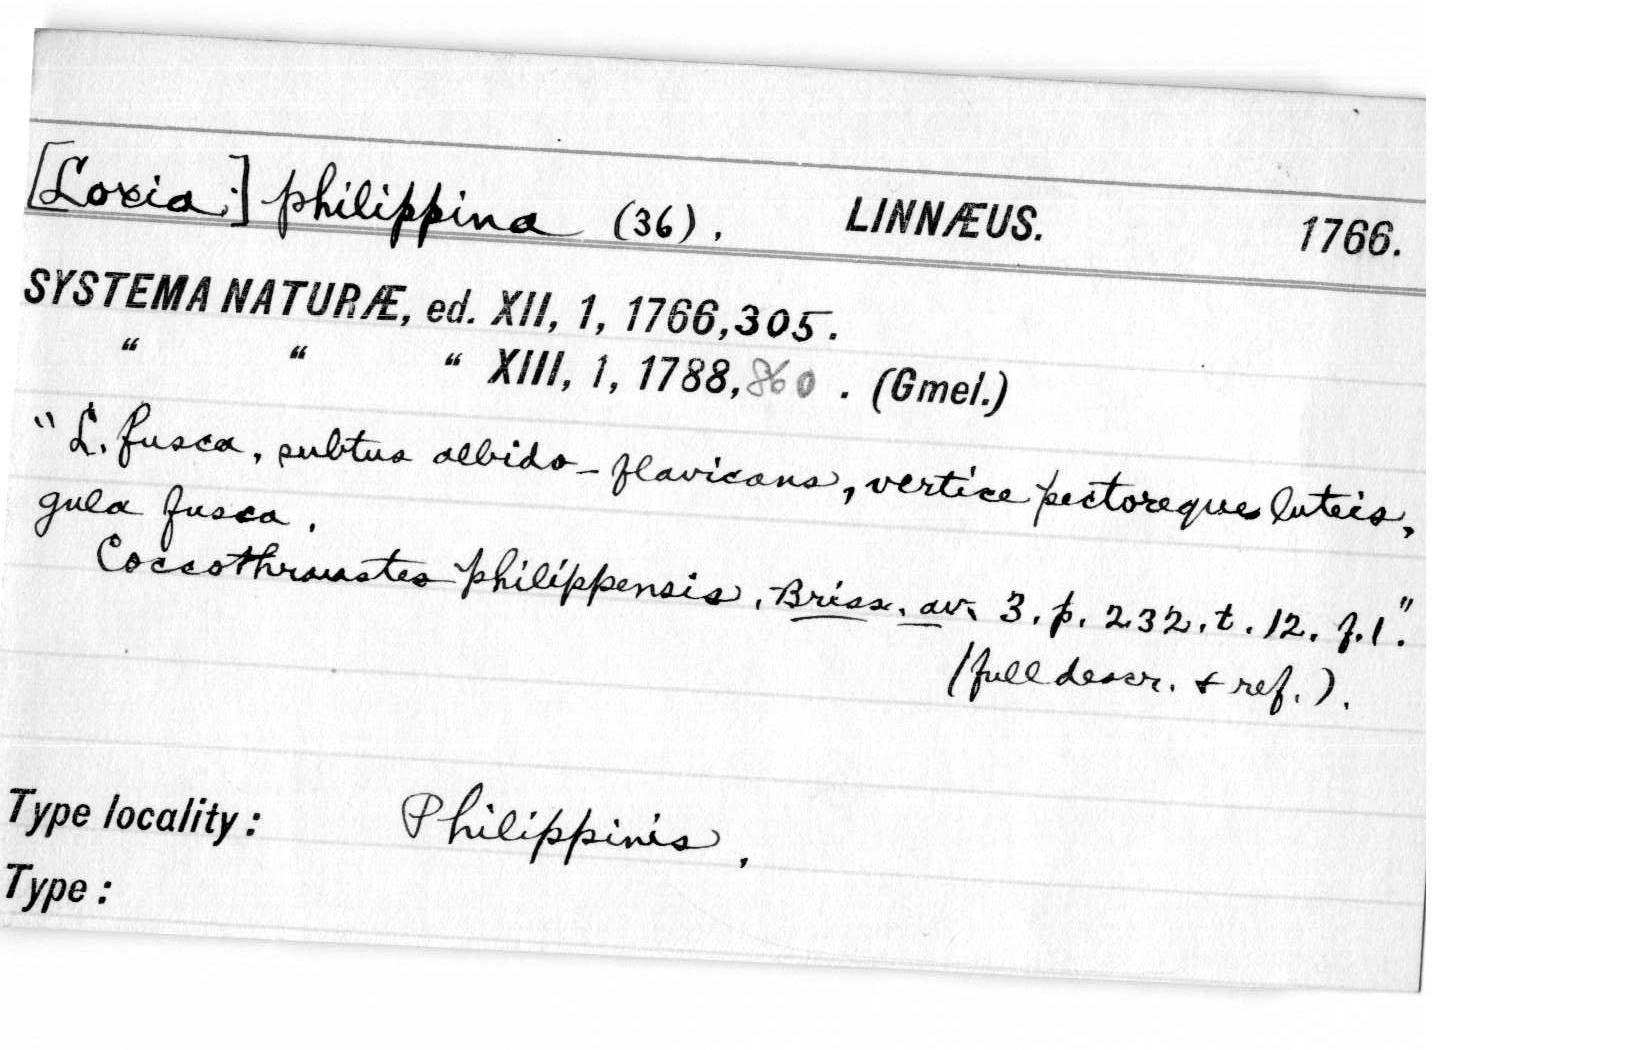 [Loxia.] philippina (36). LINNÆUS. 1766.
SYSTEMA NATURÆ, ed. XII, 1, 1766, 305.
" " " XIII, 1, 1788, 860. (Gmel.)
"L. fusca, subtus albido-flavicans, vertice pectoreque luteis,
gula fusca.
Coccothraustes philippensis, Briss. av. 3. p. 232. t. 12. f. 1."
(full descr. & ref.).
Type locality: Philippinis,
Type: